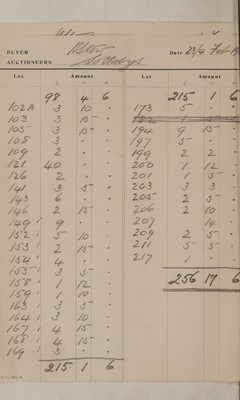 BUYER
Date 23/4 Feb 19
AUCTIONEERS Sotheby's
Lot Amount Lot Amount
£ £
98 4 6
102A 3 10 -
103 3 15 -
105 3 15 -
108 3 -
109 2 -
121 40 -
126 2 -
141 3 5 -
143 6 -
146 2 15 -
149 9 -
152 5 10
153 2 15 -
154 4 -
155 3 5
158 1 12
159 1 10
163 3 5
164 3 10
167 4 15
168 4 15
169 3 -
215 1 6
215 1 6
173 5 -
194 9 15
197 5 -
199 2 2
200 1 12
201 1 5
203 3 3
205 2 5
206 2 10
207 14
209 2 5
211 5 5
217 1 -
256 17 6